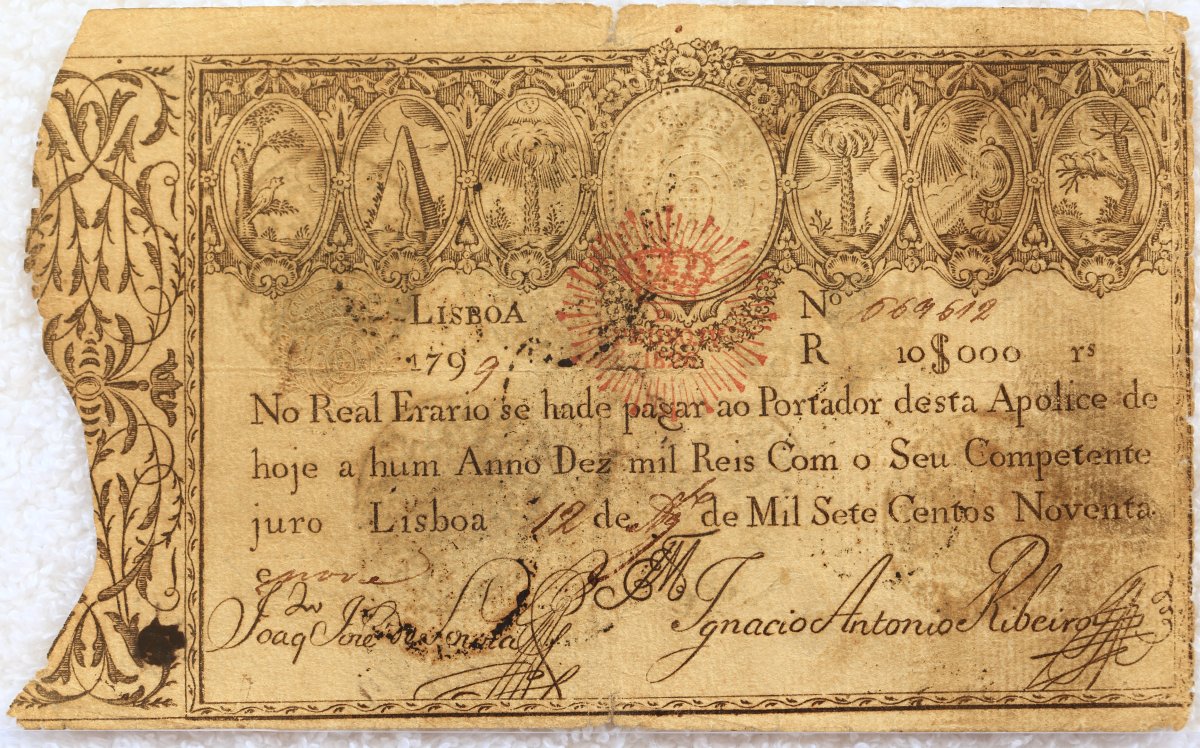 LISBOA Nº 664612
1799 R 10$000 rs
No Real Erario se hade pagar ao Portador desta Apolice de
hoje a hum Anno Dez mil Reis Com o Seu Competente
juro Lisboa 12 de de Mil Sete Centos Noventa
e nove
Joaq Jose Ignacio Antonio Ribeiro